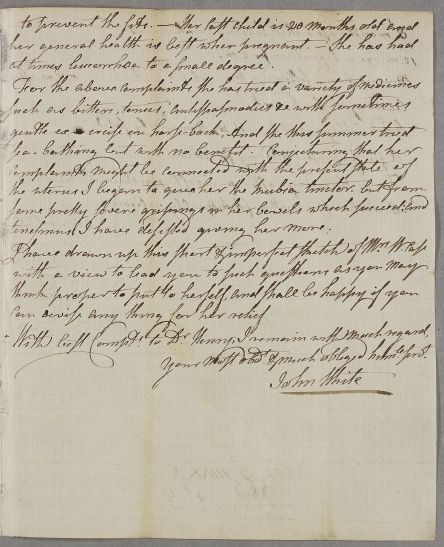 to prevent the fits. — Her last child is 20 Months old and
her general health is best when pregnant. — She has had
at times Leucorrhœa to a small degree.
For the above complaints she has tried a variety of medicines
such as bitters, tonics, antispasmodics &c with sometimes
gentle exercise on horse-back. And she this summer tried
sea-bathing but with no benefit. Conjecturing that her
complaints might be connected with the present state of
the uterus I began to give her the Rubia tinctor. but from
some pretty severe gripings in her bowels which succeeded, and
tenesmus, I have desisted giving her more.
I have drawn up this short & imperfect sketch of Mrs W case
with a view to lead you to put questions as you may
think proper to put to herself, and shall be happy if you
can devise any thing for her relief
With best Compts. to Dr Henry, I remain with Much regard,
Your Most obdt & much obliged humle servt.
John White